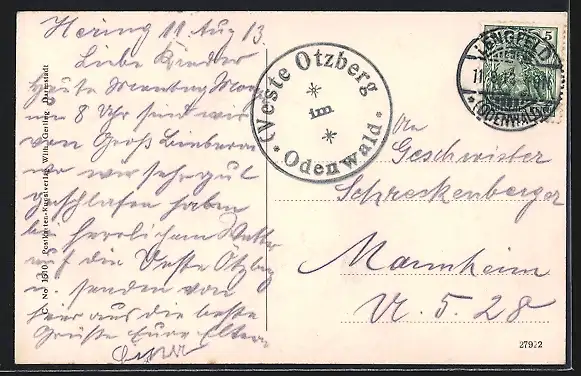 Hering 11 Aug 13.
Liebe Kinder
Heute Montag Mor
um 8 Uhr sind wir
von Groß Bieberau
wo wir sehr gut
geschlafen haben
bei herrlichem Wetter
auf die Veste Otzberg
u. senden von
hier aus die beste
Grüße Eure Eltern
Veste Otzberg
im
Odenwald
LENGFELD
11.8.13
(ODENWALD)
5
An
Geschwister
Schreckenberger
Mannheim
U. 5. 28
C. No 1500 Postkarten-Kunstverlag Wilh. Gerling, Darmstadt
27922